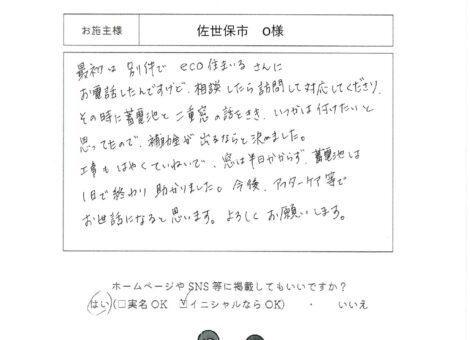 お施主様 佐世保市 O様
最初は 別件で eco住まいる さんに
お電話したんですけど、相談したら訪問して対応してくださり、
その時に蓄電池と二重窓の話をきき、いつかは付けたいと
思ってたので、補助金が出るならと決めました。
工事も はやくていねいで、窓は半日かからず、蓄電池は
1日で終わり 助かりました。今後、アフターケア等で
お世話になると思います。よろしく お願いします。
ホームページやSNS等に掲載してもいいですか？
はい(□実名OK ☑イニシャルならOK) ・ いいえ